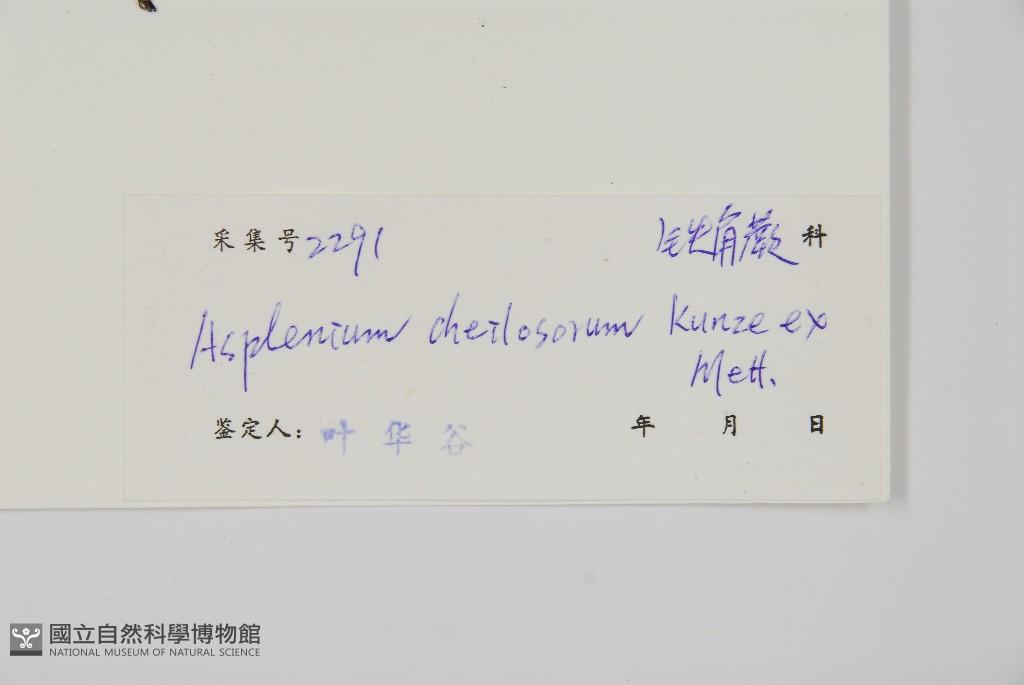 采集号 2291 铁角蕨 科
Asplenium cheilosorum Kunze ex
Mett.
鉴定人: 叶华谷 年 月 日
國立自然科學博物館
NATIONAL MUSEUM OF NATURAL SCIENCE